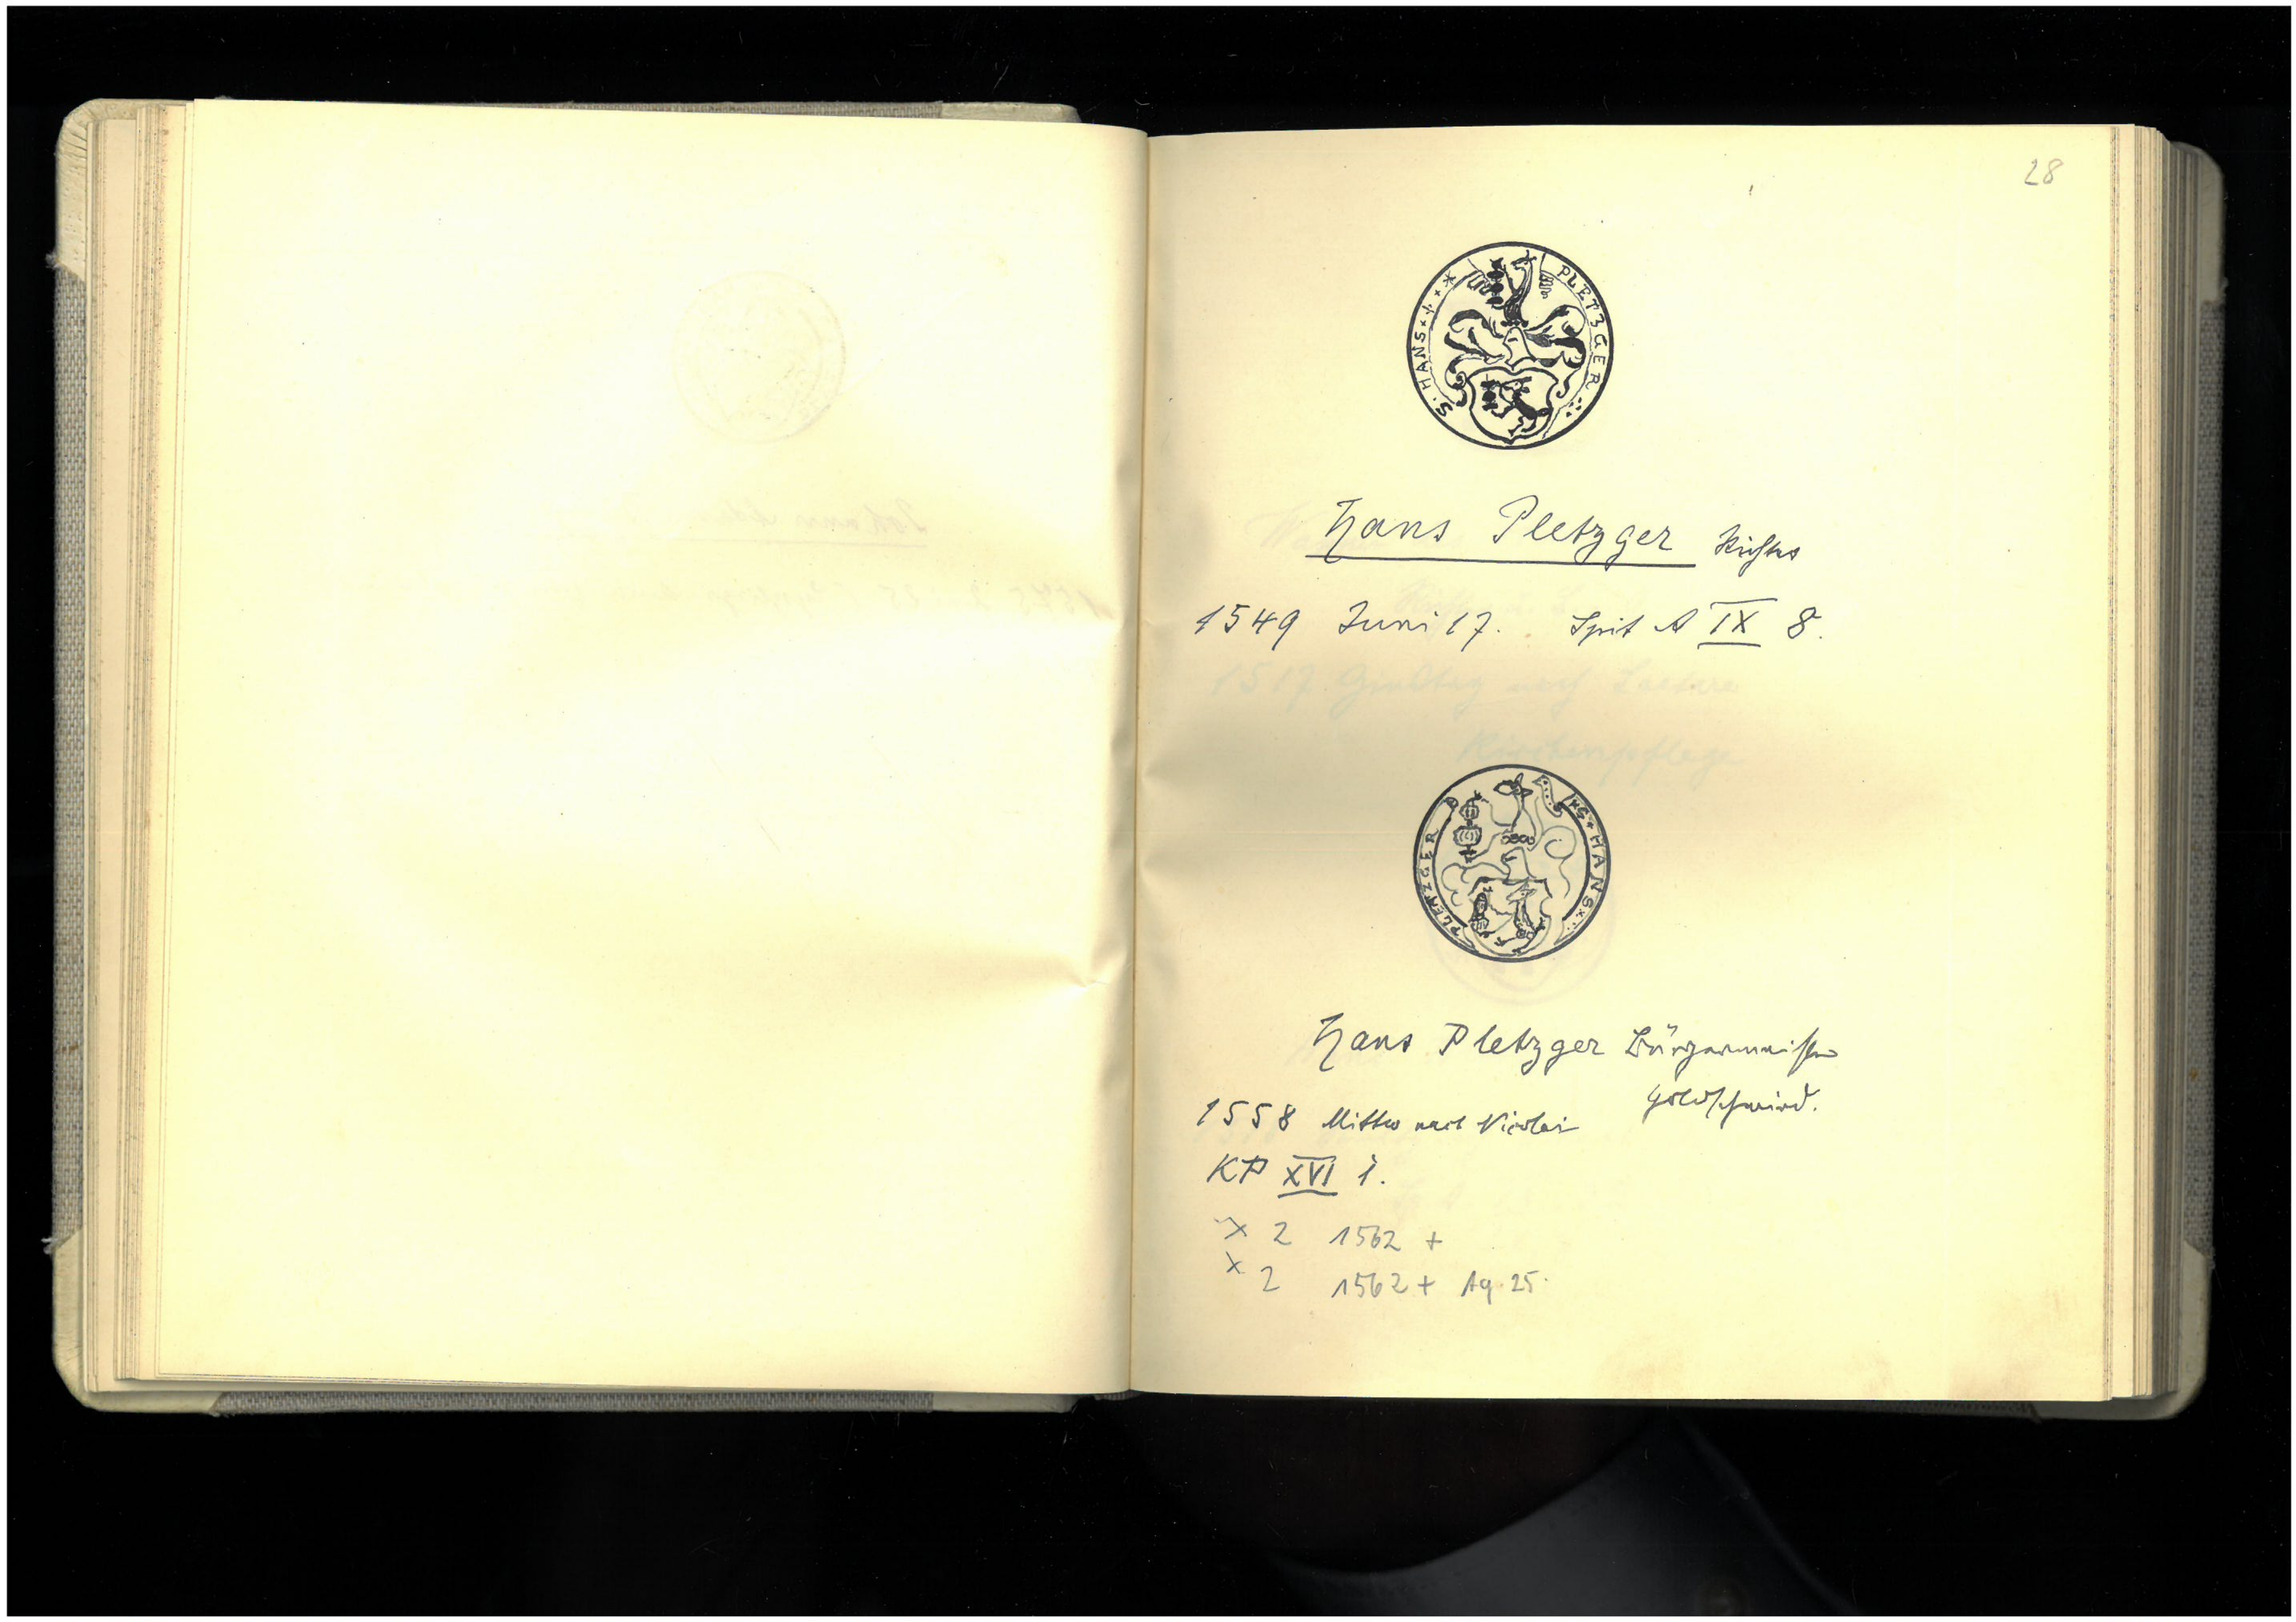 28
S. HANS
PLETZGER
Hans Pletzger Richter
1549 Juni 17. Spit A IX 8.
PLETZGER
S HANS
Hans Pletzger Bürgermeister
Goldschmied.
1558 Mittw nach Nicolai
KP XVI 1.
x 2 1562 +
x 2 1562 + Ag 25.